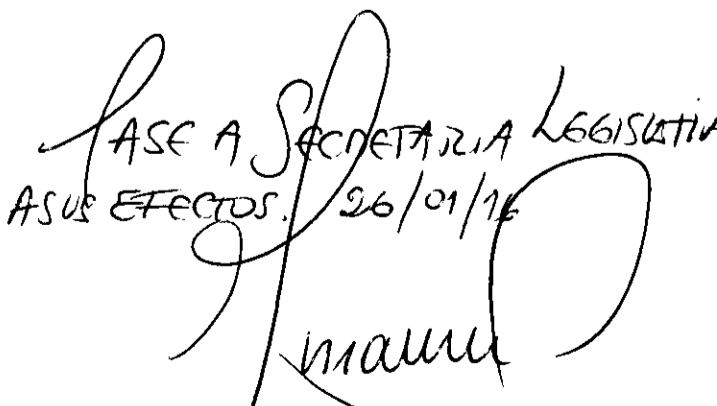 PASE A SECRETARIA LEGISLATIVA
A SUS EFECTOS. 26/01/16